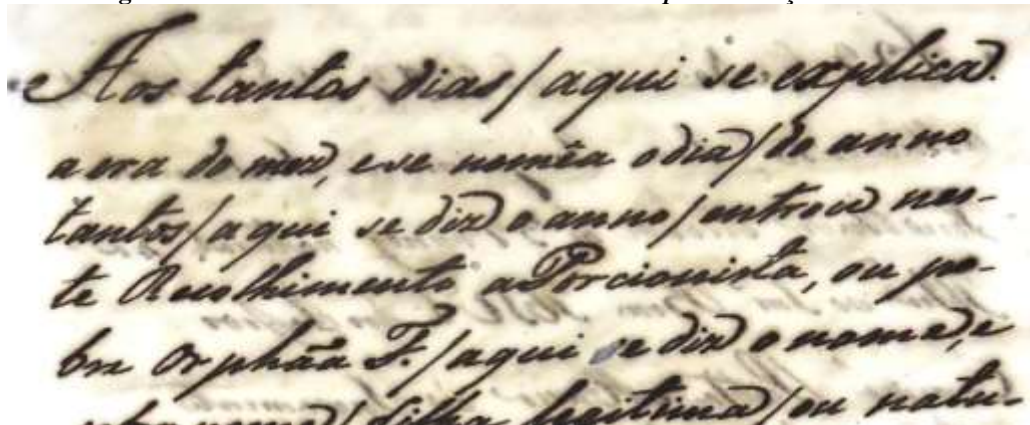 Aos tantos dias / aqui se explica
a era do mez, e se nomêa o dia / do anno
tantos / aqui se diz o anno / entrou nes-
te Recolhimento a Porcionista, ou po-
bre Orphãa F. / aqui se diz o nome, e
nome / filha legitima / ou natu-